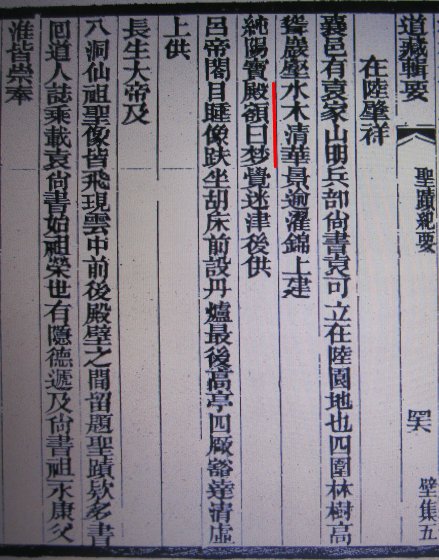 道藏輯要
聖蹟紀要
壁集五
在陸肇祥
襄邑有袁家山明兵部尚書袁可立在陸園地也四圍林樹高
聳巖壑水木清華景逾濯錦上建
純陽寶殿額曰梦覺迷津後供
呂帝閤目睡像趺坐胡床前設丹爐最後高亭四厰豁達清虛
上供
長生大帝及
八洞仙祖聖像皆飛現雲中前後殿壁之間留題聖蹟欵多書
回道人誌乘載袁尚書始祖榮世有隱德遞及尚書祖永康父
淮皆崇奉